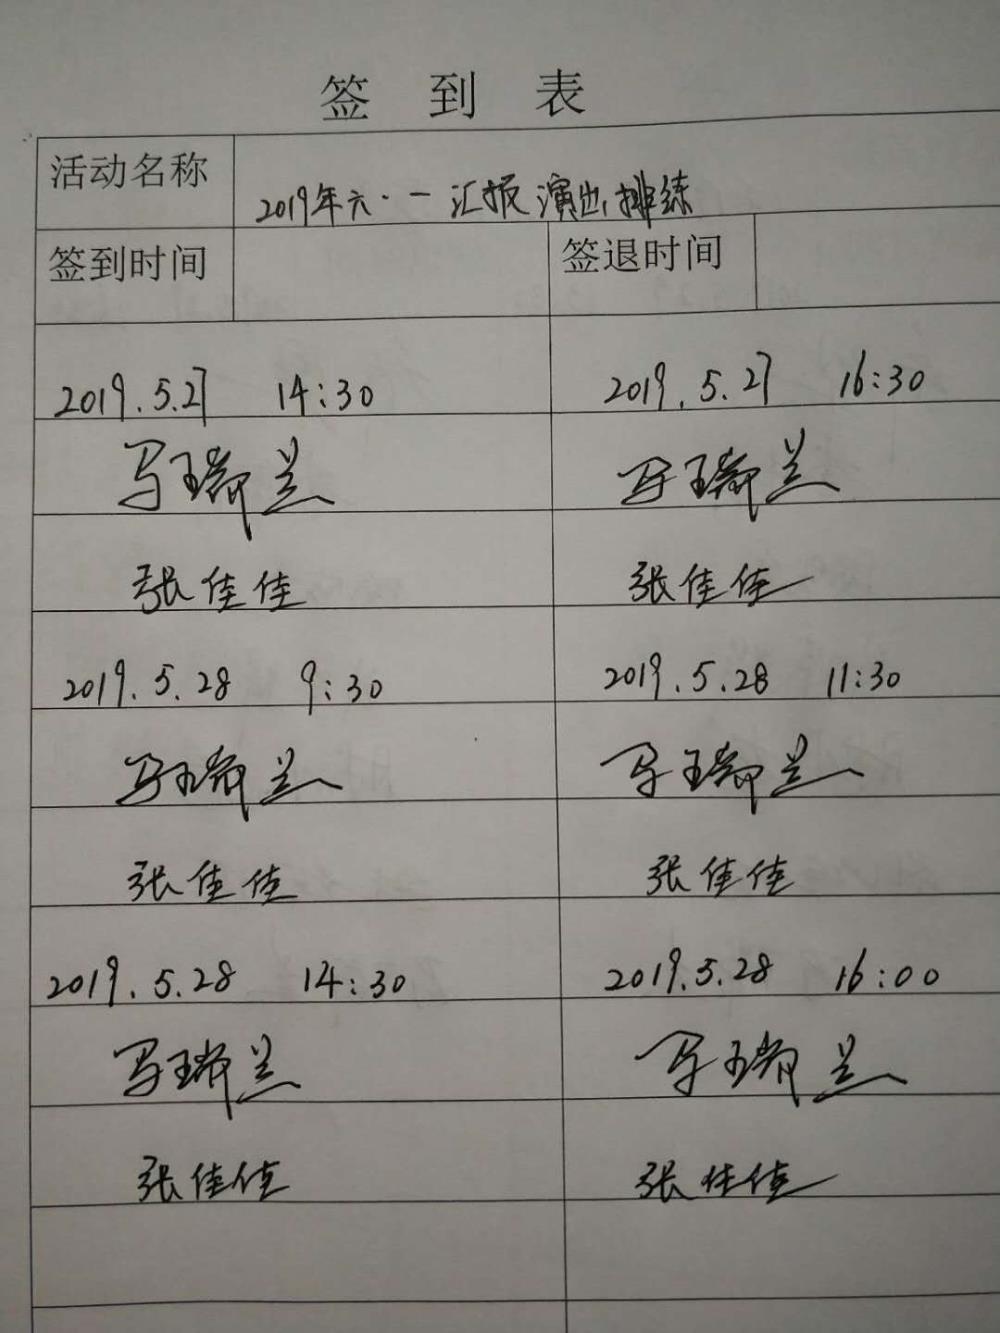 签到表
活动名称 2019年六·一汇报演出排练
签到时间 签退时间
2019.5.27 14:30 2019.5.27 16:30
马瑞兰 马瑞兰
张佳佳 张佳佳
2019.5.28 9:30 2019.5.28 11:30
马瑞兰 马瑞兰
张佳佳 张佳佳
2019.5.28 14:30 2019.5.28 16:00
马瑞兰 马瑞兰
张佳佳 张佳佳